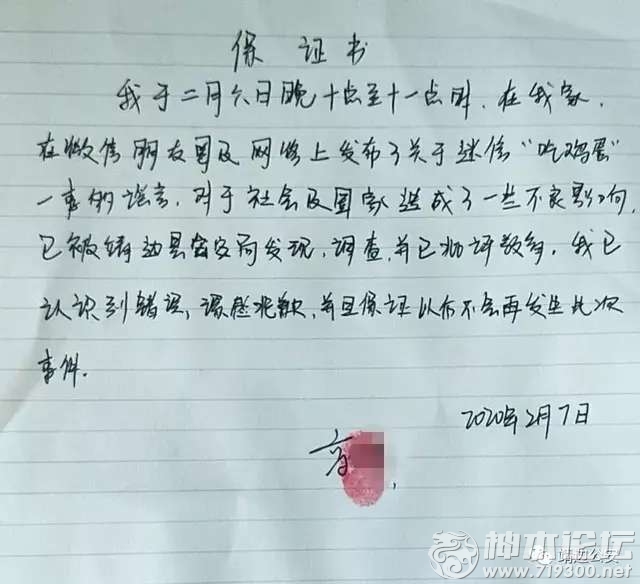 保证书
我于二月六日晚十点至十一点时，在我家，
在微信朋友圈及网络上发布了关于迷信“吃鸡蛋”
一事的谣言，对于社会及国家造成了一些不良影响，
已被靖边县公安局发现，调查，并已批评教育，我已
认识到错误，深感抱歉，并且保证以后不会再发生此次
事件。
2020年2月7日
靖边公安
神木论坛
www.719300.net